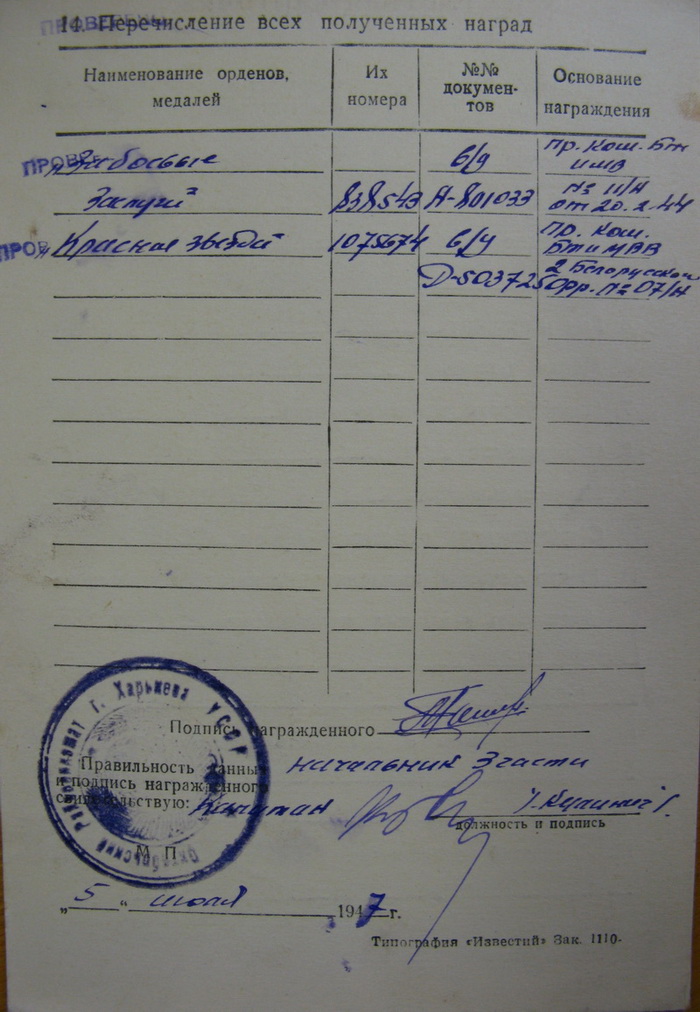 14. Перечисление всех полученных наград
Наименование орденов, медалей
Их номера
№№ документов
Основание награждения
ПРОВЕ
"За боевые
б/у
пр. Ком.
Заслуги"
838543
А-801033
№ 11/н
от 20.2.44
ПРОВ
"Красная звезда"
1075674
б/у
пр. Ком.
БТиМВ
2 Белорусского
Д-503725
фр. № 07/н
Октябрьский Райвоенкомат г. Харькова УССР
Подпись награжденного
Правильность данных
и подпись награжденного
свидетельствую:
Начальник 3 части
Капитан
должность и подпись
М П
„ 5 “ июля 1947 г.
Типография «Известий» Зак. 1110.